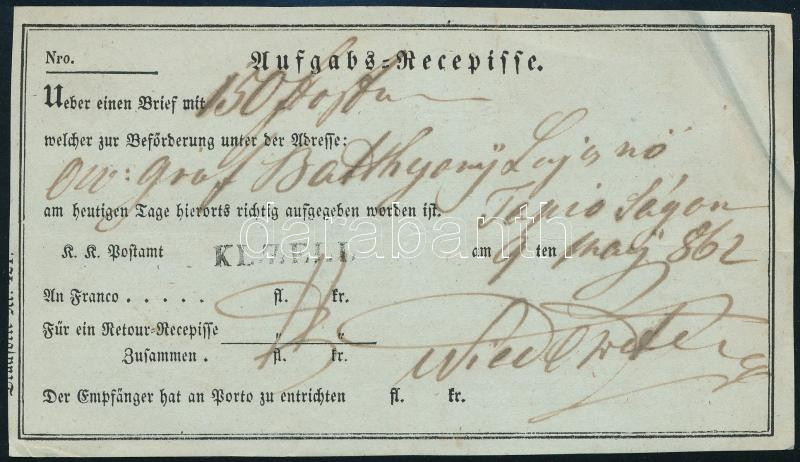 Nro.
Aufgabs=Recepisse.
Ueber einen Brief mit 150
welcher zur Beförderung unter der Adresse:
graf Batthyány Lajos nö
am heutigen Tage hierorts richtig aufgegeben worden ist. Tapio Ságon
K. K. Postamt am 9 ten May 862
An Franco . . . . . fl. kr.
Für ein Retour=Recepisse „ „
Zusammen . fl. kr.
Der Empfänger hat an Porto zu entrichten fl. kr.
darabanth